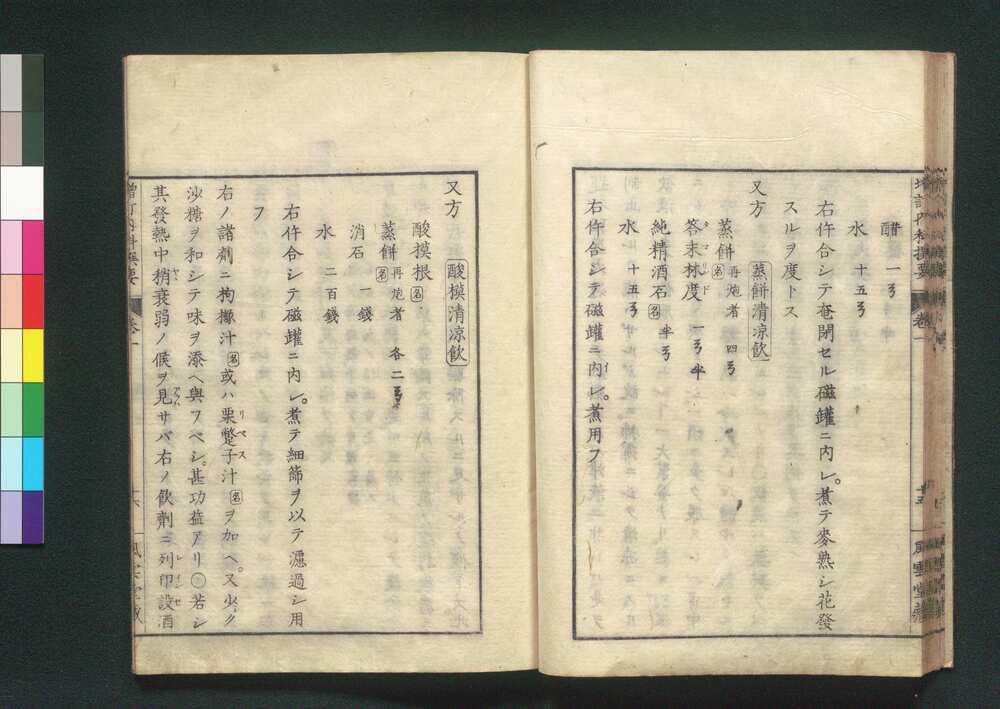 醋 一ヲ
水 十五ヲ
右件合シテ奄閉セル磁罐ニ内レ。煮テ麥熟シ花發
スルヲ度トス
又方 蒸餅清涼飲
蒸餅 名 再炮者 四ヲ
荅末林度 一ヲ半
タマリンド
純精酒石 名 半ヲ
水 十五ヲ
右件合シテ磁罐ニ内レ。煮用フ
又方 酸模清涼飲
酸摸根 名
蒸餅 名 再炮者 各二ヲ
消石 一錢
水 二百錢
右件合シテ磁罐ニ内レ。煮テ細篩ヲ以テ濾過シ用
フ
右ノ諸劑ニ拘櫞汁 名 或ハ栗蹩子汁 名 ヲ加ヘ。又少シク
リベス
沙糖ヲ和シテ味ヲ添ヘ與フベシ。甚功益アリ〇若シ
其發熱中稍衰弱ノ候ヲ見サバ右ノ飲劑ニ列印設酒
増訂内科撰要 卷一
風雲堂藏